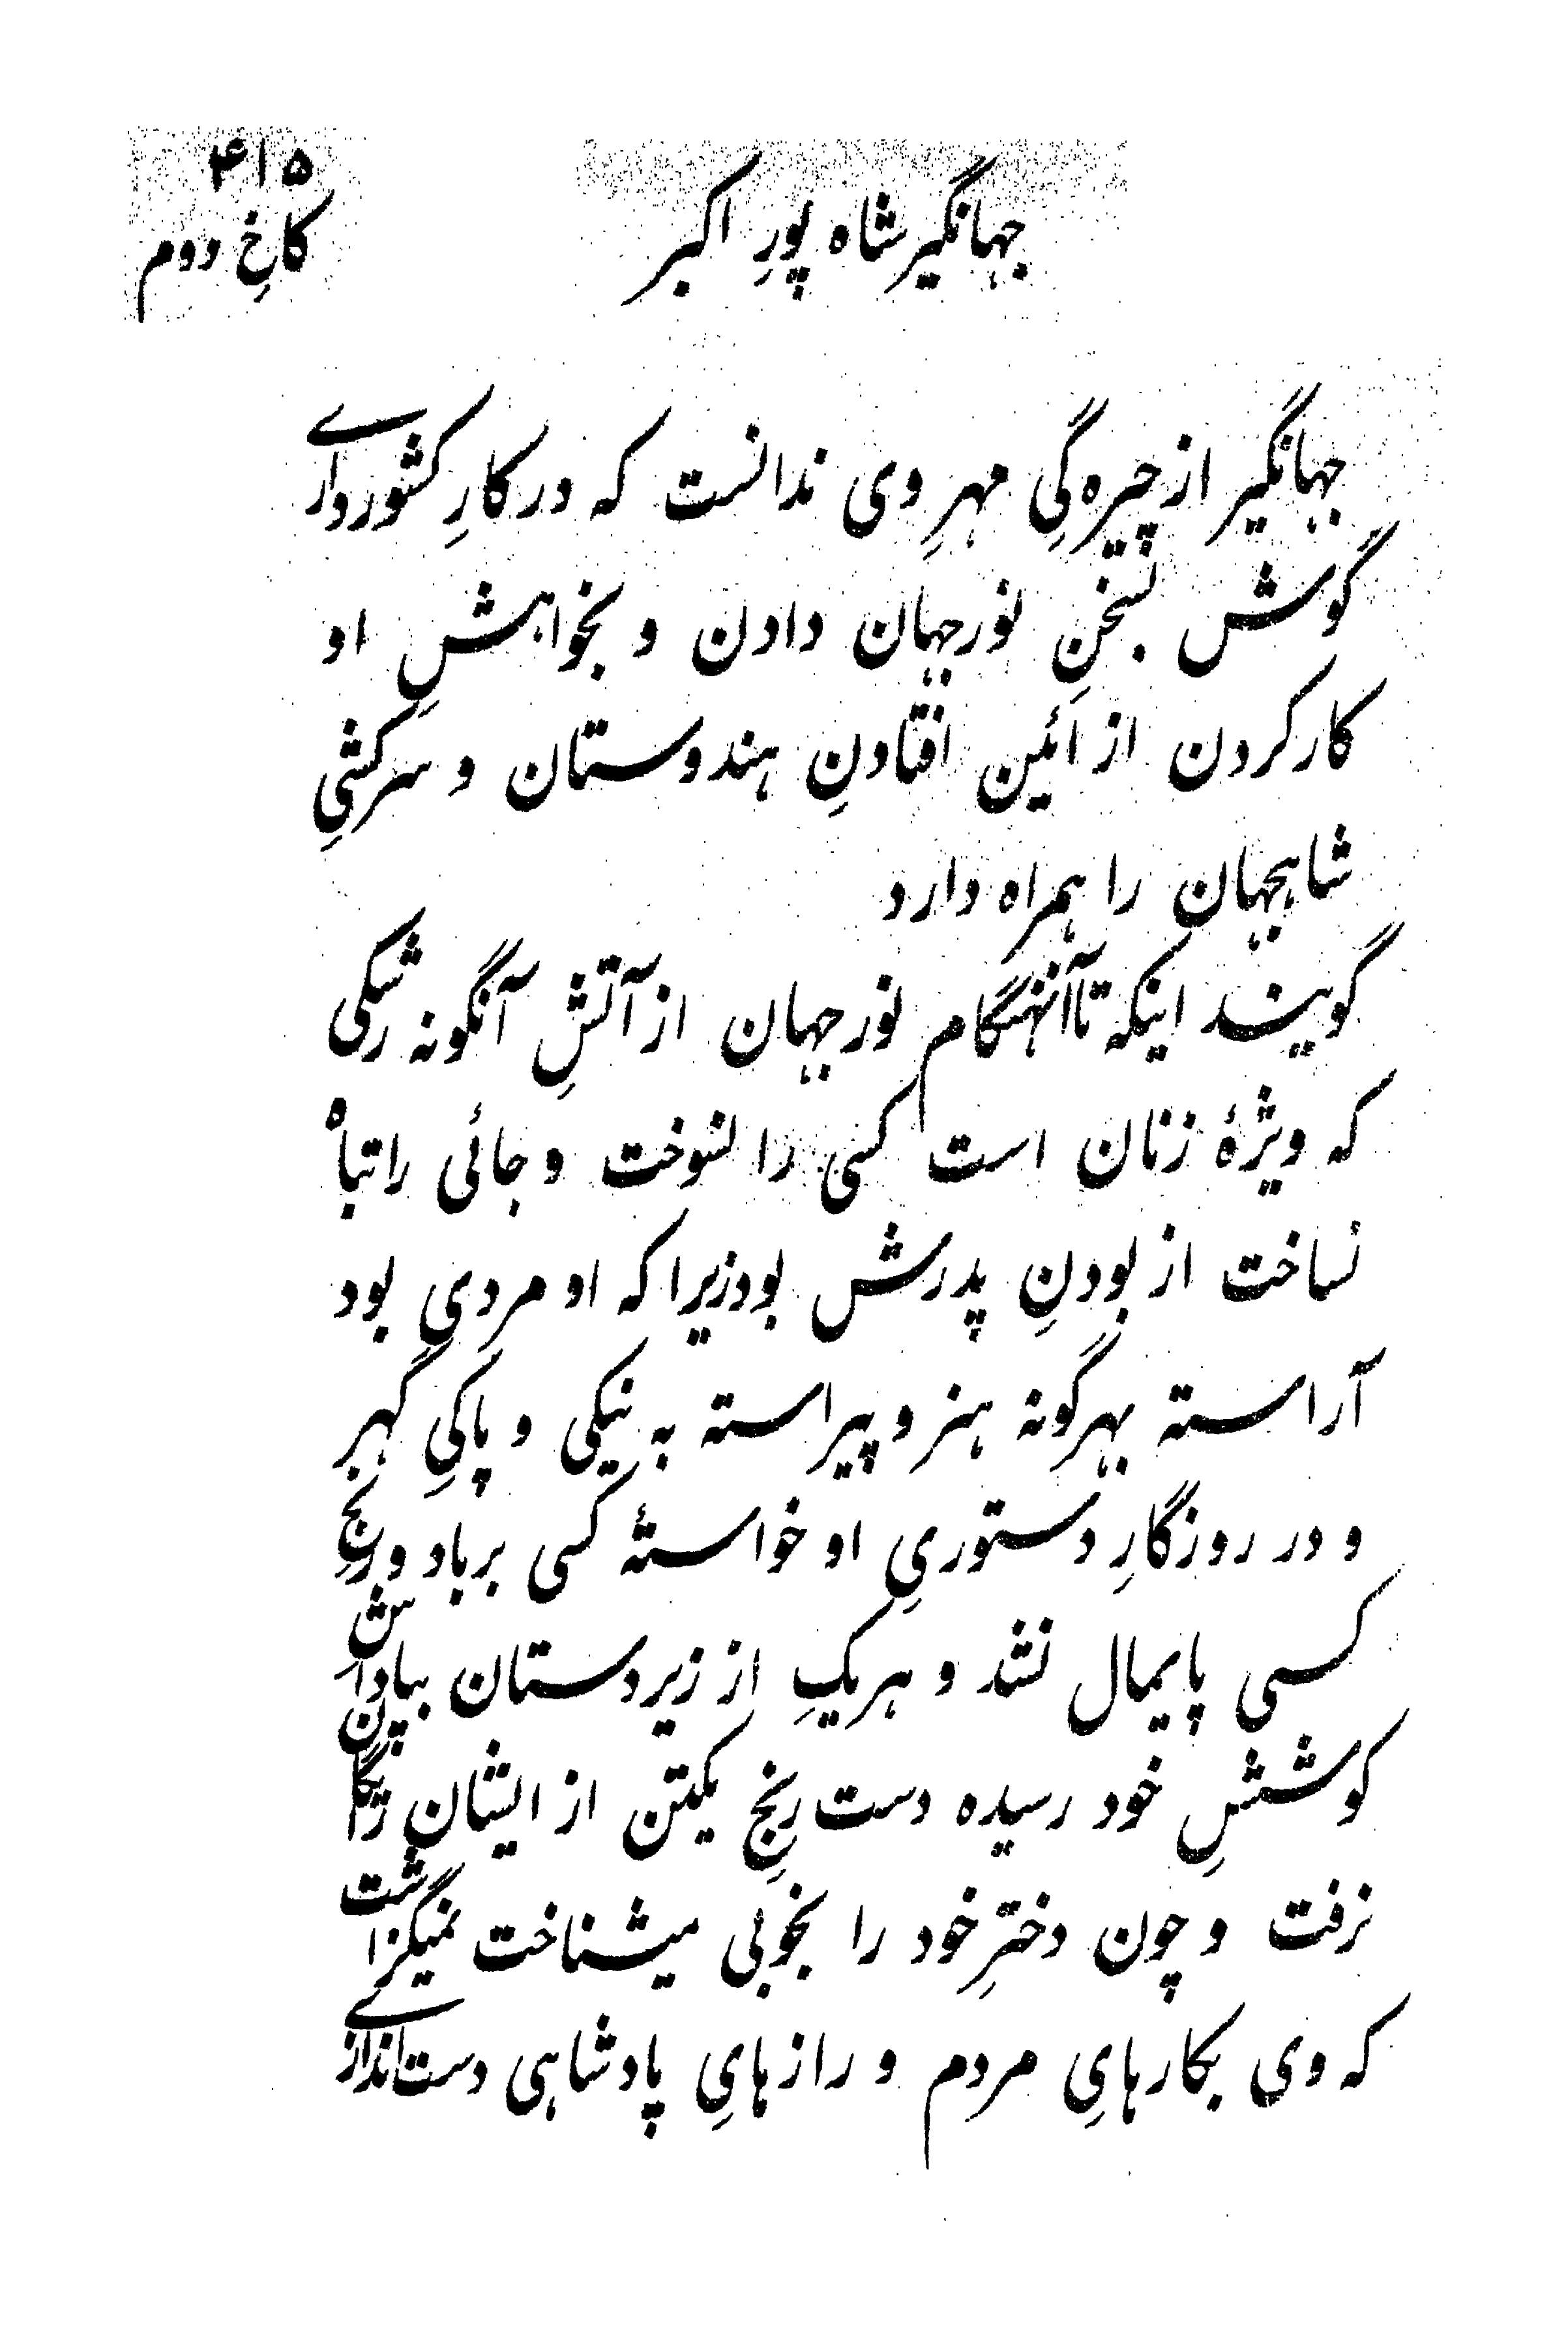 ۴۱۵
جهانگیر شاه پورِ اکبر
کاخِ دوم
جهانگیر از چیره‌گیِ مهرِ وی ندانست که در کارِ کشورداری
گوش بسخنِ نورجهان دادن و بخواهشِ او
کار کردن از ائین افتادنِ هندوستان و سرکشیِ
شاهجهان را همراه دارد
گویند اینکه تا آنهنگام نورجهان از آتشِ آنگونه رشکی
که ویژهٔ زنان است کسی را نسوخت و جائی را تباه
نساخت از بودنِ پدرش بود زیرا که او مردی بود
آراسته بهرگونه هنر و پیراسته به نیکی و پاکیِ گهر
و در روزگارِ دستوریِ او خواستهٔ کسی برباد و رنجِ
کسی پایمال نشد و هر یکِ از زیردستان بپاداشِ
کوششِ خود رسیده دست رنجِ یکتن از ایشان رایگان
نرفت و چون دخترِ خود را بخوبی میشناخت نمیگزاشت
که وی بکارهایِ مردم و رازهایِ پادشاهی دست‌اندازی